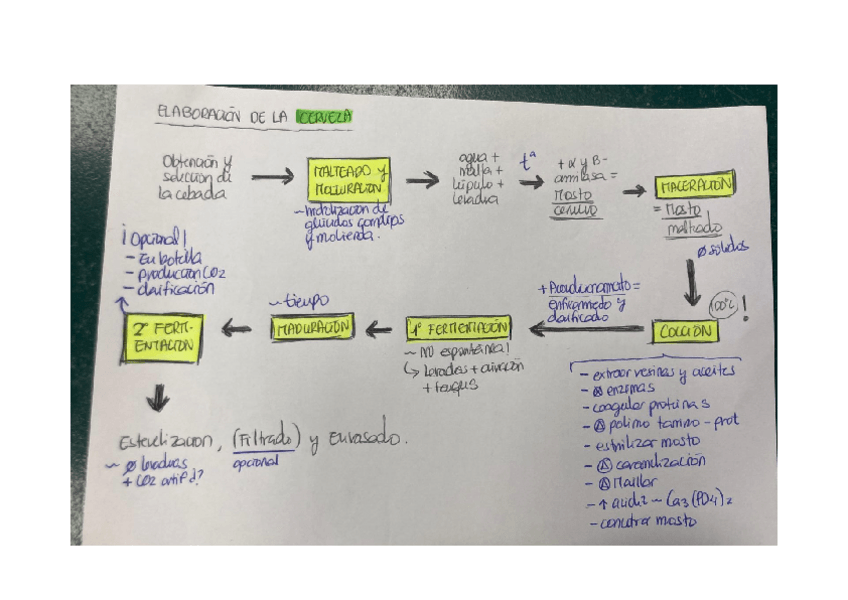 ELABORACIÓN DE LA CERVEZA
Obtención y
selección de
la cebada
MALTEADO y
MOLTURACIÓN
~ hidrolización de
glúcidos complejos
y molienda.
agua +
malta +
lúpulo +
levadura
tª
+ α y β-
amilasa =
Mosto
cervecero
MACERACIÓN
= Mosto
malteado
ø sólidos
100ºC !
COCCIÓN
- extraer resinas y aceites
- enzimas
- coagular proteínas
- polimo tanino-prot
- esterilizar mosto
- caramelización
- Maillar
- ↑ acidz ~ Ca3(PO4)2
- concentrar mosto
+
enfriamiento y
clarificado
1º FERMENTACIÓN
~ NO espontánea!
↳ levaduras + aireación
+ tanques
~ tiempo
MADURACIÓN
2º FERM-
ENTACIÓN
¡Opcional!
- En botella
- producción CO2
- clarificación
Esterilización, (Filtrado) y Envasado.
~ ø levaduras
opcional
+ CO2 artif?